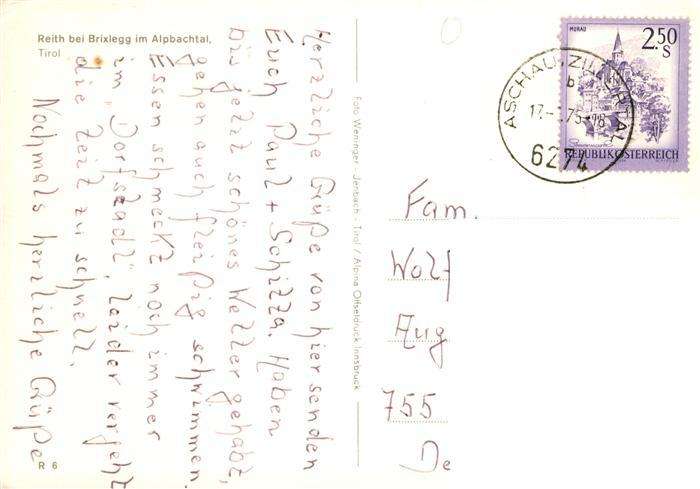 Reith bei Brixlegg im Alpbachtal,
Tirol
Herzliche Grüße von hier senden
Euch Paul + Schizza. Haben
bis jetzt schönes Wetter gehabt,
gehen auch fleißig schwimmen.
Essen schmeckt noch immer
im "Dorfstadl", leider vergeht
die Zeit zu schnell.
Nochmals herzliche Grüße
R 6
Foto Weninger - Jenbach - Tirol / Alpina Offsetdruck Innsbruck
MURAU
2.50
S
REPUBLIK ÖSTERREICH
ASCHAU, ZILLERTAL
b
6274
Fam.
Wolf
Aug
755
De